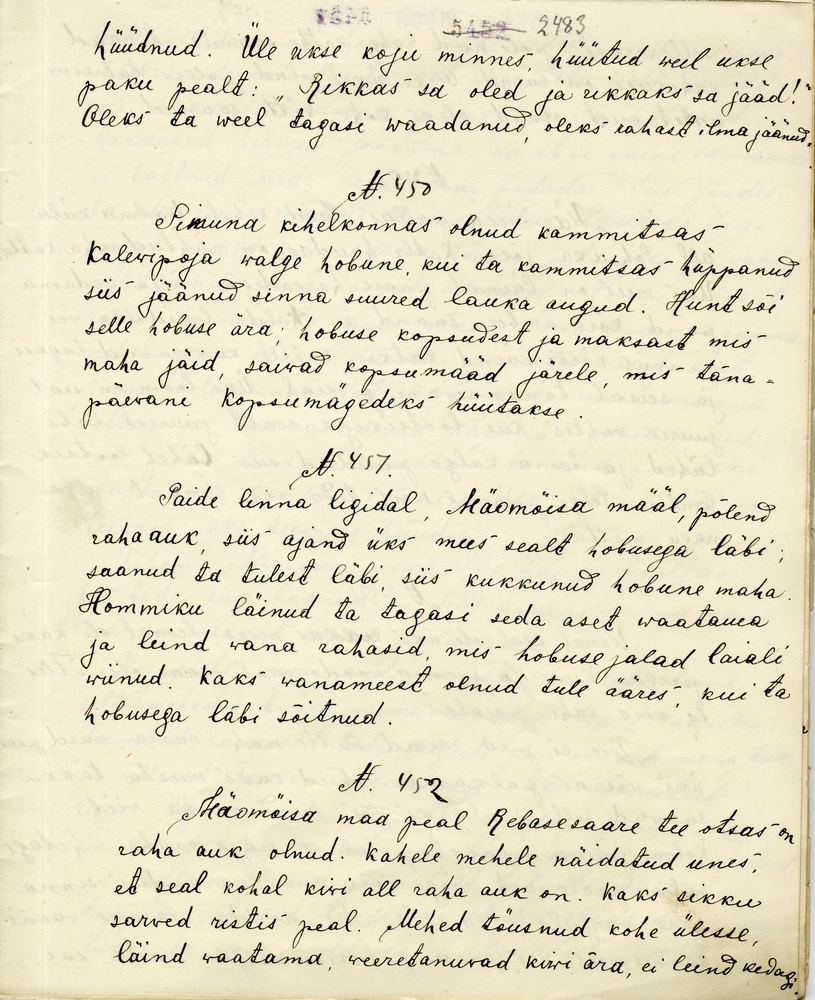 5452 2483
hüüdnud. Üle ukse koju minnes, hüütud weel ukse
paku pealt: „Rikkas sa oled ja rikkaks sa jääd!"
Oleks ta weel tagasi waadanud, oleks rahast ilma jäänud.
N. 450
Simuna kihelkonnas olnud kammitsas
Kalewipoja walge hobune, kui ta kammitsas hüppanud
siis jäänud sinna suured lauka augud. Hunt sõi
selle hobuse ära; hobuse kopsudest ja maksast mis
maha jäid, saiwad kopsumääd järele, mis täna-
päewani Kopsumägedeks hüütakse.
N. 451.
Paide linna ligidal, Mäomõisa määl, põlend
raha auk, siis ajand üks mees sealt hobusega läbi;
saanud ta tulest läbi, siis kukkunud hobune maha.
Hommiku läinud ta tagasi seda aset waatama
ja leind wana rahasid, mis hobuse jalad laiali
wiinud. Kaks wanameest olnud tule ääres, kui ta
hobusega läbi sõitnud.
N. 452
Mäomõisa maa peal Rebasesaare tee otsas on
raha auk olnud. Kahele mehele näidatud unes,
et seal kohal kiwi all raha auk on. Kaks sikku
sarwed ristis peal. Mehed tõusnud kohe ülesse,
läind waatama, weeretanuwad kiwi ära, ei leind kedagi.